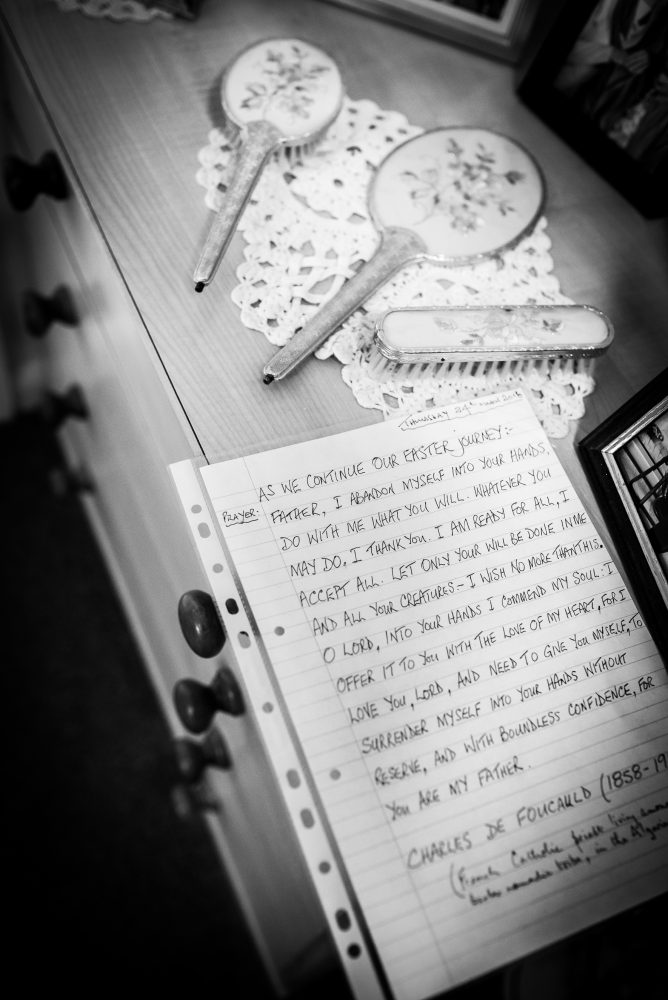 THURSDAY 24th
AS WE CONTINUE OUR EASTER JOURNEY:-
PRAYER: FATHER, I ABANDON MYSELF INTO YOUR HANDS,
DO WITH ME WHAT YOU WILL. WHATEVER YOU
MAY DO, I THANK YOU. I AM READY FOR ALL, I
ACCEPT ALL. LET ONLY YOUR WILL BE DONE IN ME
AND ALL YOUR CREATURES - I WISH NO MORE THAN THIS.
O LORD, INTO YOUR HANDS I COMMEND MY SOUL: I
OFFER IT TO YOU WITH THE LOVE OF MY HEART, FOR I
LOVE YOU, LORD, AND NEED TO GIVE YOU MYSELF, TO
SURRENDER MYSELF INTO YOUR HANDS WITHOUT
RESERVE, AND WITH BOUNDLESS CONFIDENCE, FOR
YOU ARE MY FATHER.
CHARLES DE FOUCAULD (1858-19
(French Catholic priest living
nomadic tribe, in the